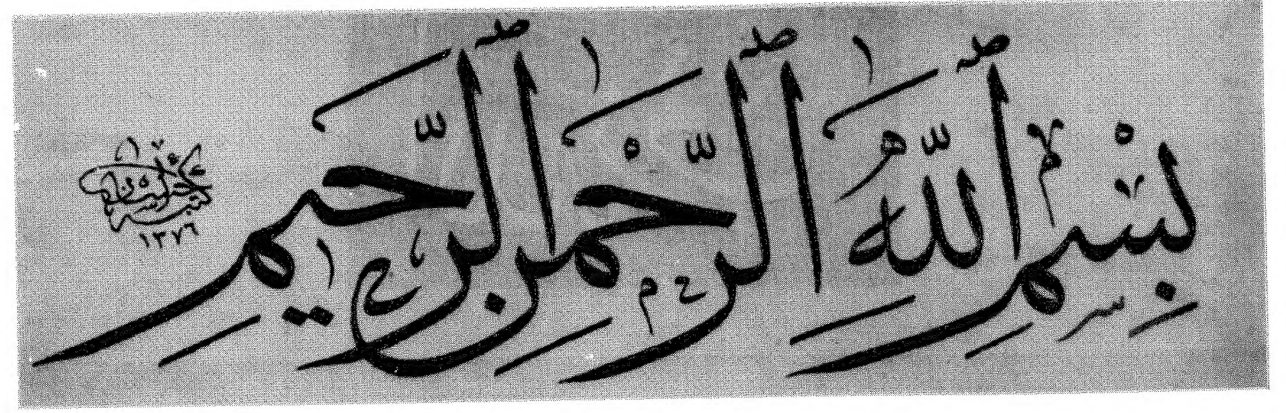 بِسْمِ ٱللَّهِ ٱلرَّحْمٰنِ ٱلرَّحِيمِ
كتبه
١٣٧٦